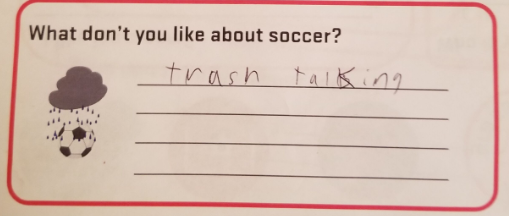 What don't you like about soccer?
trash talking